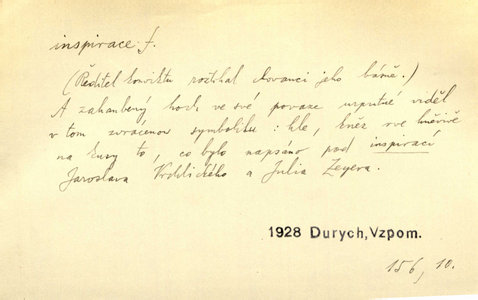 inspirace f.
(Ředitel konviktu roztrhal chovanci jeho básně.)
A zahanbený hoch ve své povaze urputné viděl
v tom zvrácenou symboliku: hle, kněz rve hněvivě
na kusy to, co bylo napsáno pod inspirací
Jaroslava Vrchlického a Julia Zeyera.
1928 Durych, Vzpom.
156, 10.